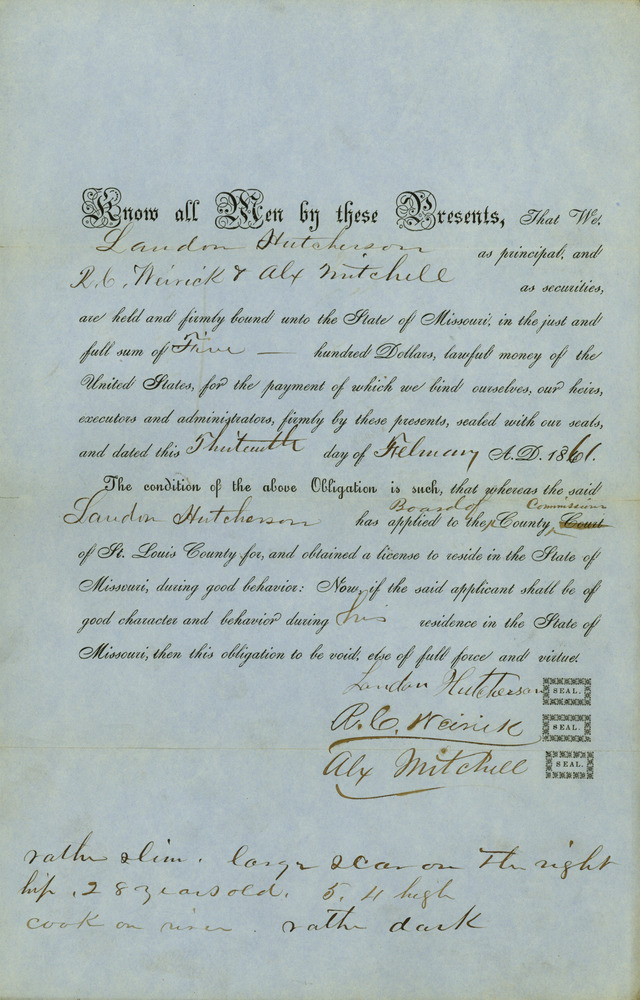 Know all Men by these Presents, That We,
Landon Hutcherson as principal, and
R. C. Weirick & Alx Mitchell as securities,
are held and firmly bound unto the State of Missouri, in the just and
full sum of Five — hundred Dollars, lawful money of the
United States, for the payment of which we bind ourselves, our heirs,
executors and administrators, firmly by these presents, sealed with our seals,
and dated this Thirteenth day of February A.D. 1861.
The condition of the above Obligation is such, that whereas the said
Board of Commissioners
Landon Hutcherson has applied to the County Court
of St. Louis County for, and obtained a license to reside in the State of
Missouri, during good behavior: Now, if the said applicant shall be of
good character and behavior during his residence in the State of
Missouri, then this obligation to be void, else of full force and virtue.
Landon Hutcherson SEAL.
R. C. Weirick SEAL.
Alx Mitchell SEAL.
rather slim. large scar on the right
hip. 28 years old. 5. 4 high
cook on river. rather dark